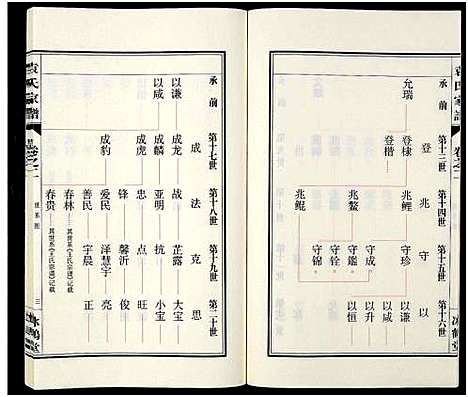 袁氏家譜
卷之二
承前
第十三世
第十四世
第十五世
第十六世
登
兆
守
以
允瑞
登棣
登楷
兆鲤
兆鰲
兆鲲
守珍
守成
守鑑
守铨
守锦
以谦
以咸
以升
以恒
承前
第十七世
第十八世
第十九世
第二十世
成
法
克
思
以谦
以咸
成龙
成麟
成虎
成豹
战
亚明
忠
爱民
善民
春林
春贵
锋
芷露
抗
点
馨沂
洋慧宇
宇晨
大宝
小宝
旺
俊
亮
正
其世系《王氏宗谱》记载
其世系《王氏宗谱》记载
袁氏家譜
世系图
三